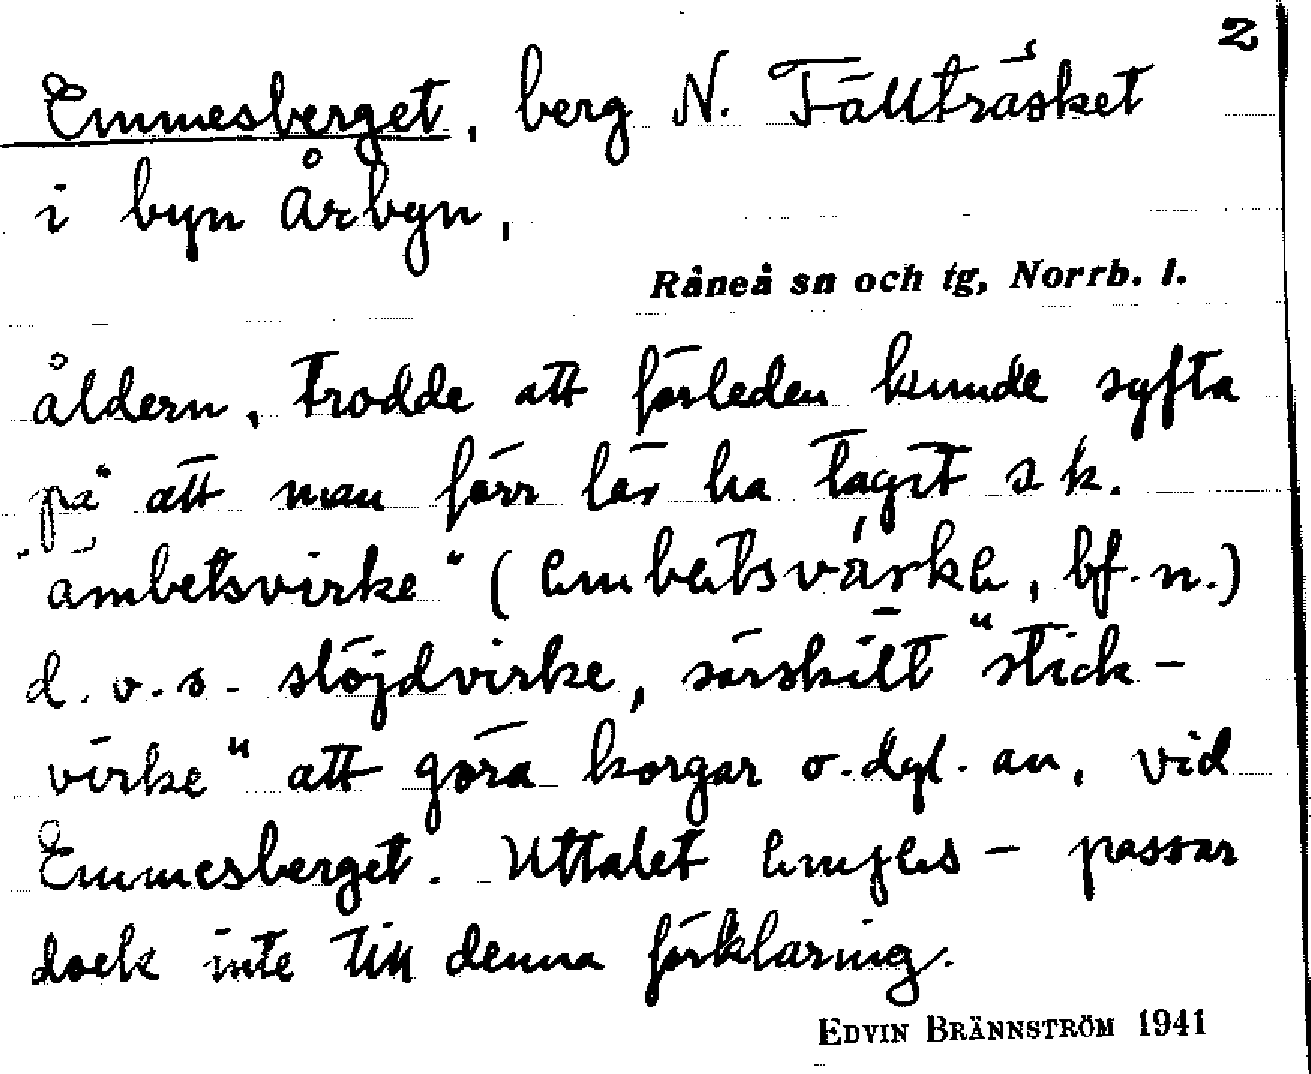 2
Emmesberget, berg N. Fällträsket
i byn Årbyn,
Råneå sn och tg, Norrb. l.
åldern, trodde att förleden kunde syfta
på att man förr lär ha tagit s k.
"ämbetsvirke" (
, bf. n.)
d. v. s. slöjdvirke, särskilt "stick-
virke" att göra korgar o. dyl. av, vid
Emmesberget. Uttalet
– passar
dock inte till denna förklaring.
EDVIN BRÄNNSTRÖM 1941